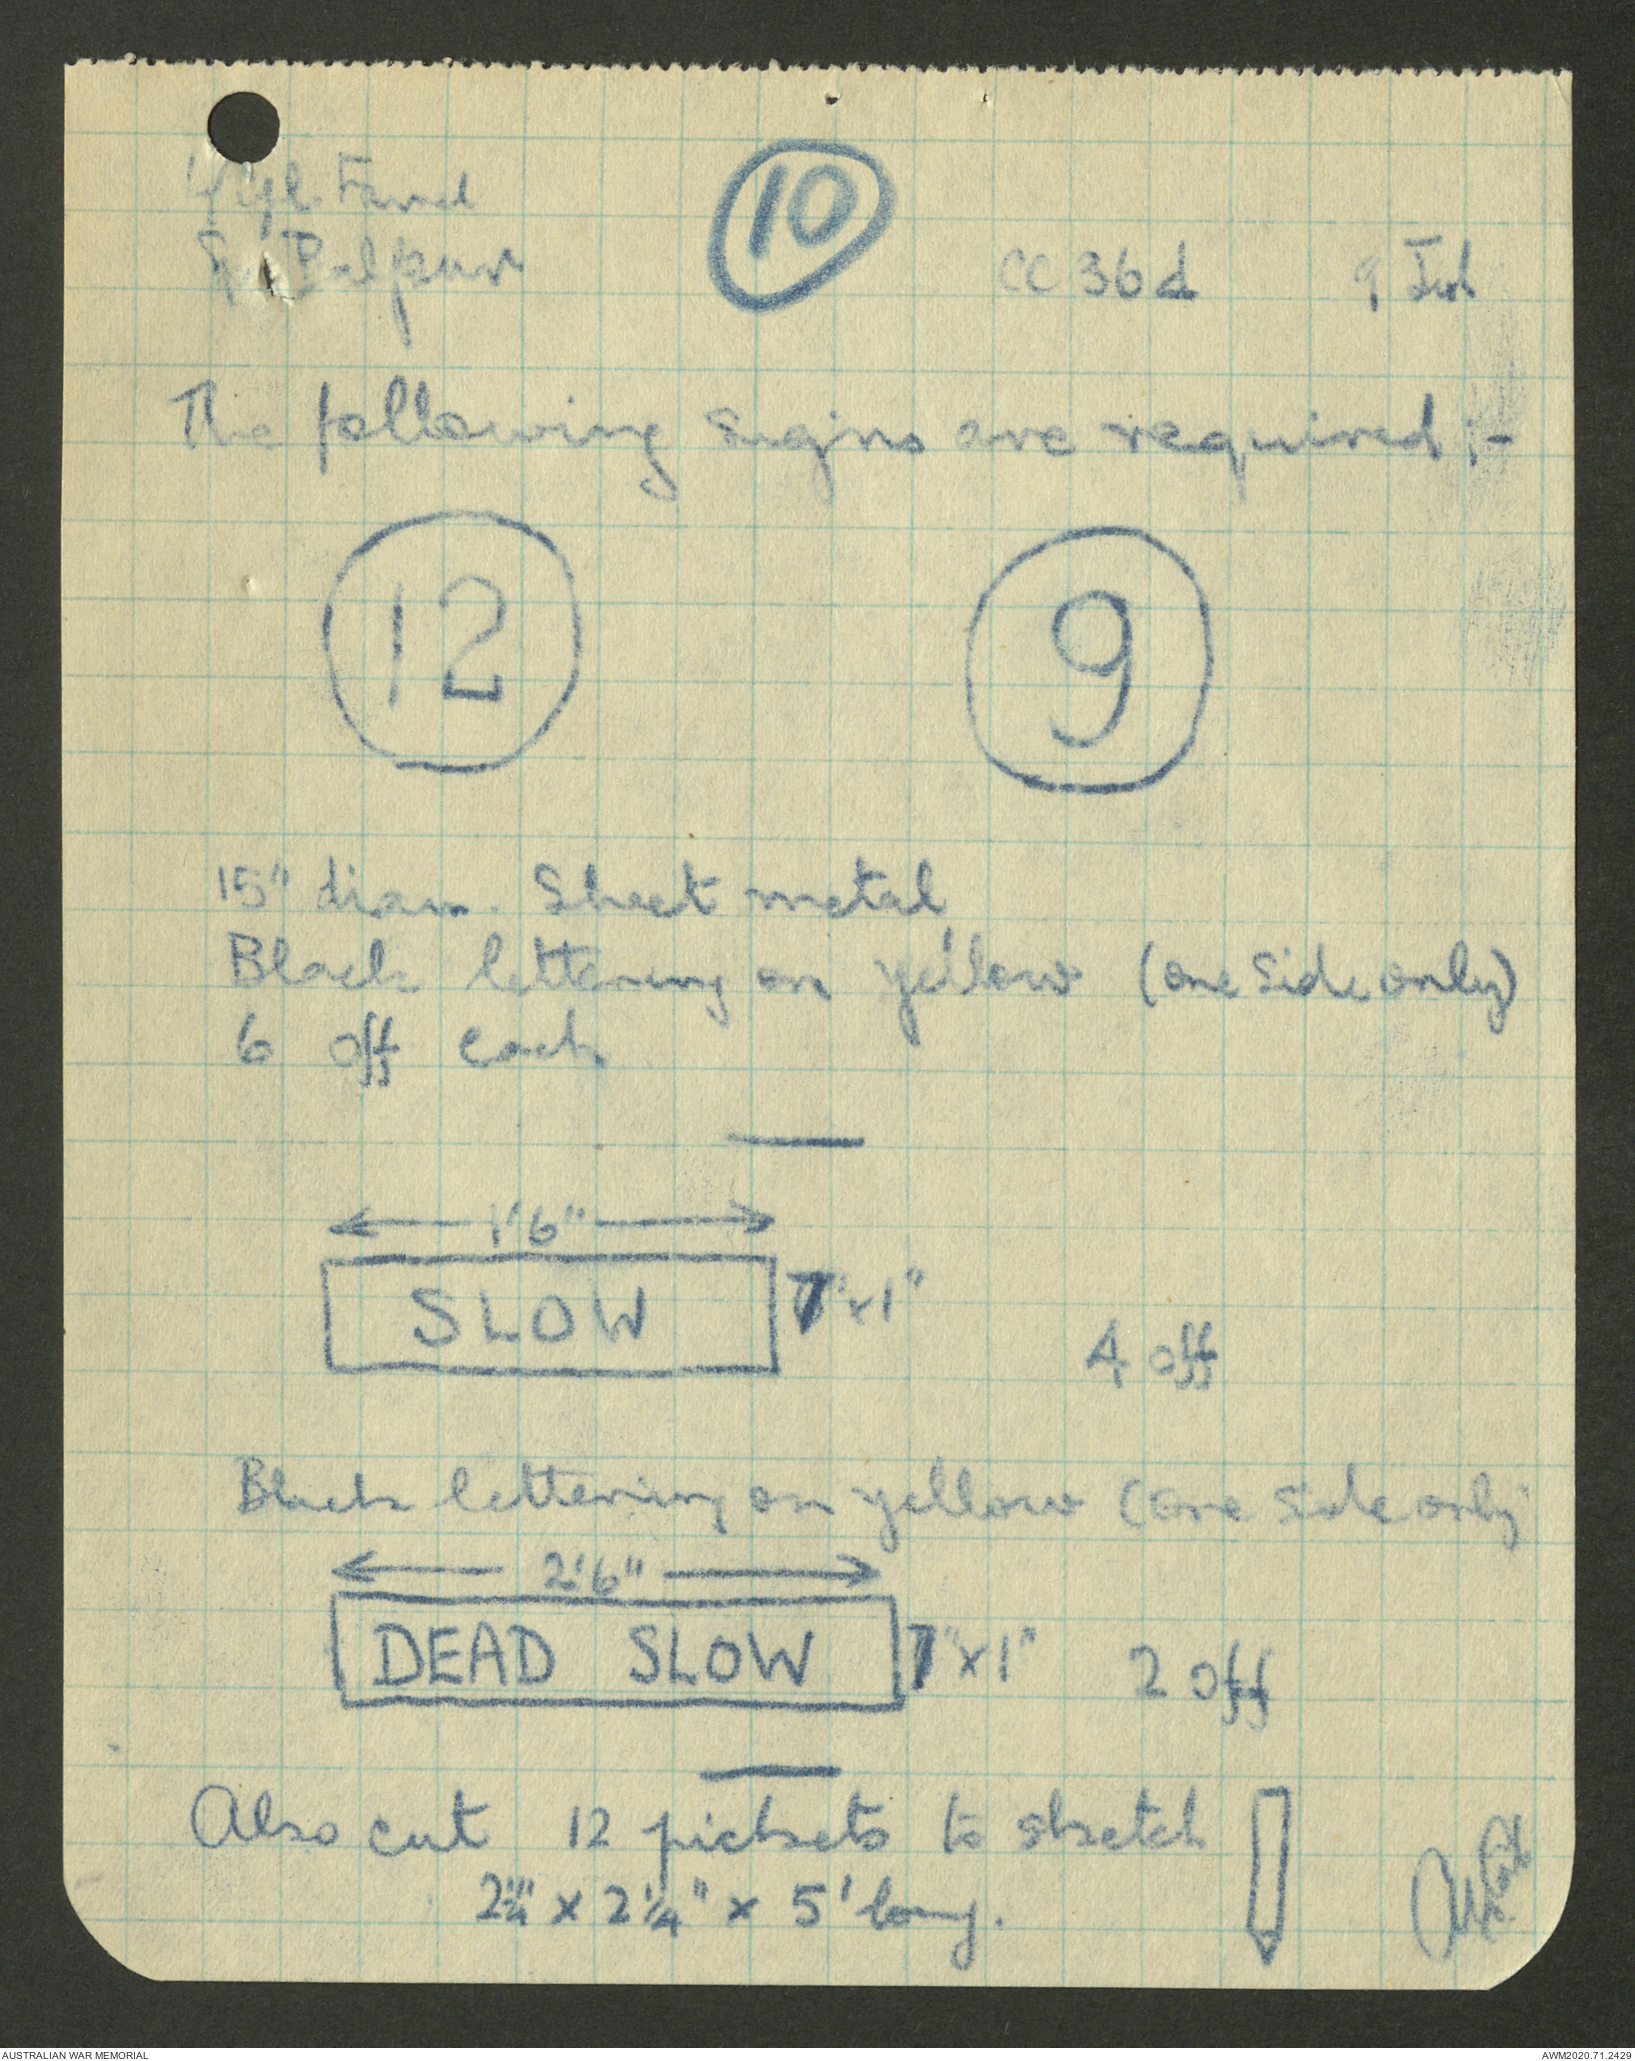 10
CC 36d
The following signs are required :-
12 9
15" diam. Sheet metal
Black lettering on yellow (one side only)
6 off each
1'6"
SLOW 7" x 1"
4 off
Black lettering on yellow (one side only
2'6"
DEAD SLOW 7" x 1" 2 off
Also cut 12 pickets to sketch
2¼" x 2¼" x 5' long.
AUSTRALIAN WAR MEMORIAL AWM2020.71.2429